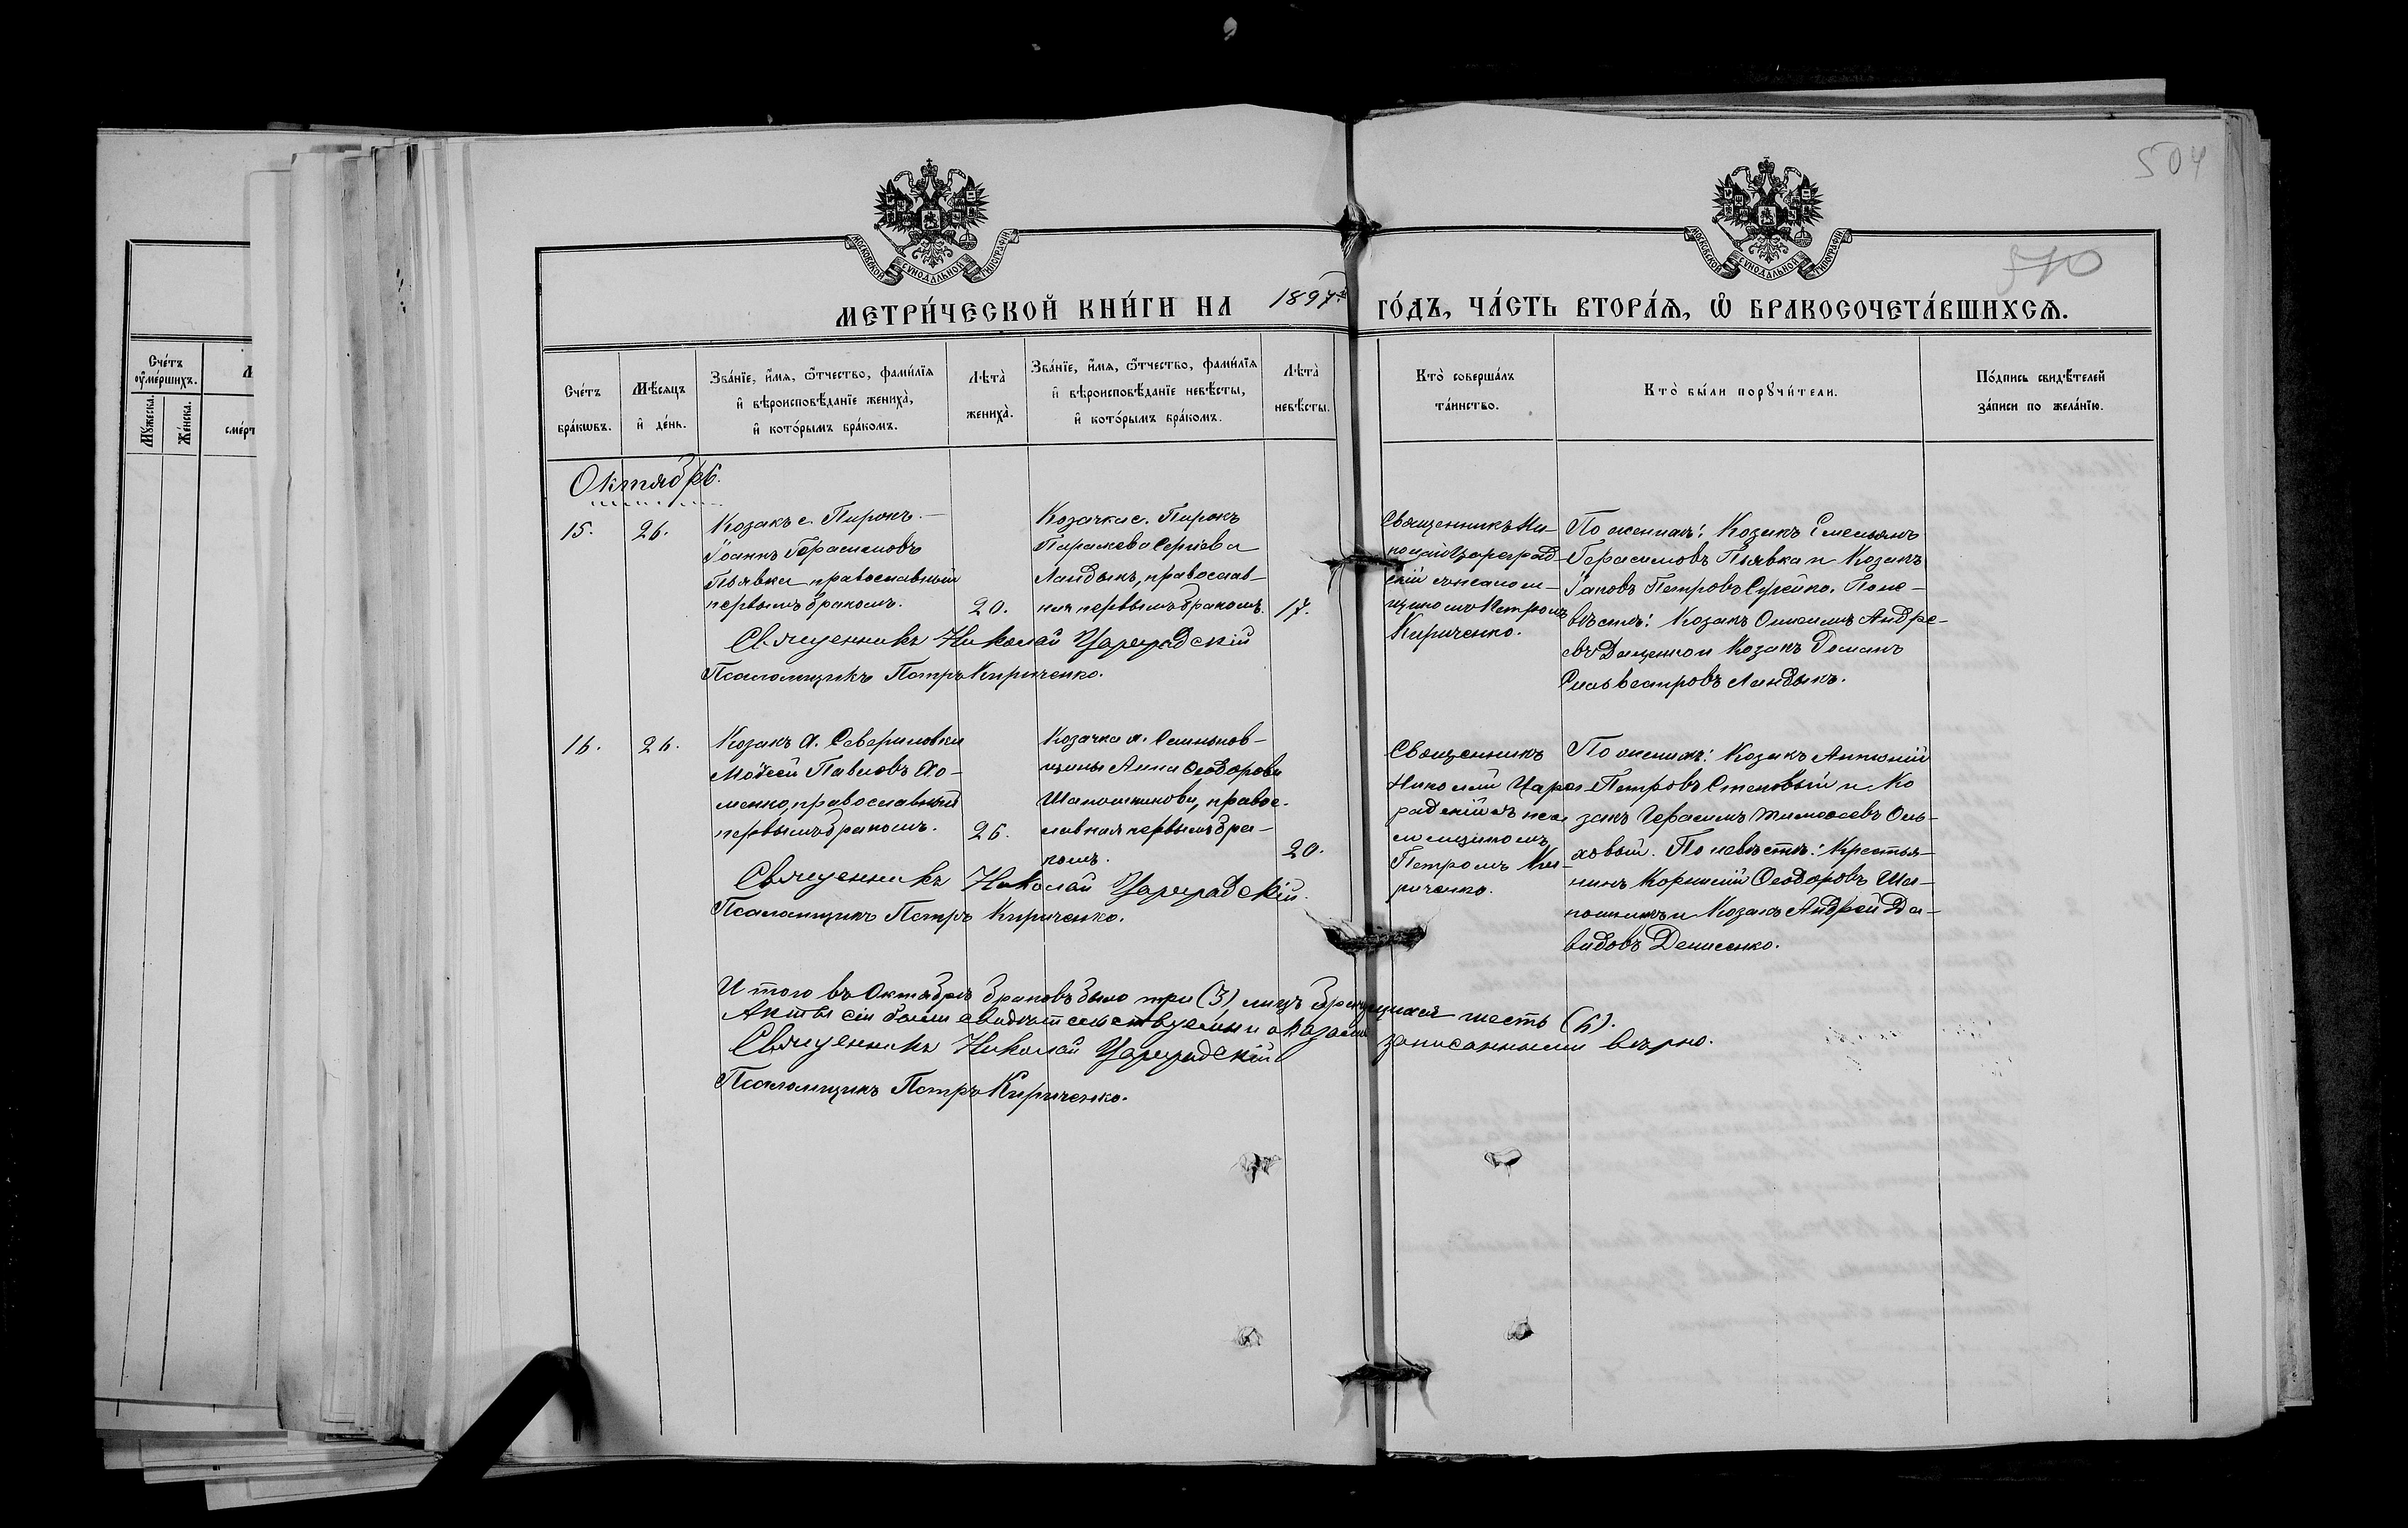 504
570
МОСКОВСКОЙ СУНОДАЛЬНОЙ ТИПОГРАФІИ
МОСКОВСКОЙ СУНОДАЛЬНОЙ ТИПОГРАФІИ
МЕТРИ́ЧЕСКОЙ КНИ́ГИ НА 1897й ГО́ДЪ, ЧА́СТЬ ВТОРА́Ѧ, Ѡ҆ БРАКОСОЧЕТА́ВШИХСѦ.
Сче́тъ ᲂу҆ме́ршихъ.
Мꙋ́жеска.
Же́нска.
Сче́тъ бра́кѡвъ.
Мѣ́сѧцъ и҆ де́нь.
Зва́нїе, и҆́мѧ, ѻ҆́тчество, фами́лїѧ
и҆ вѣроисповѣ́данїе жениха̀,
и҆ кото́рымъ бра́комъ.
Лѣта̀ жениха̀.
Зва́нїе, и҆́мѧ, ѻ҆́тчество, фами́лїѧ
и҆ вѣроисповѣ́данїе невѣ́сты,
и҆ кото́рымъ бра́комъ.
Лѣта̀ невѣ́сты.
Кто̀ соверша́лъ
та́инство.
Кто̀ бы́ли порꙋчи́тели.
По́дпись свидѣ́телей
за́писи по жела́нїю.
Октябрь.
15.
26.
Козакъ с. Пирокъ
Іоаннъ Герасимовъ
Пьявка православный
первымъ бракомъ.
20.
Козачка с. Пирокъ
Параскева Сергіева
Ландыкъ, православ-
ная первымъ бракомъ.
17.
Священникъ Ни-
колай Цареград-
скій съ псалом-
щикомъ Петромъ
Кириченко.
По женихѣ: Козакъ Емельянъ
Герасимовъ Пьявка и Козакъ
Іаковъ Петровъ. По не-
вѣстѣ: Козакъ Онисимъ Андре-
евъ Даценко и Козакъ Романъ
Сильвестровъ Ландыкъ.
Священникъ Николай Цареградскій
Псаломщикъ Петръ Кириченко.
16.
26.
Козакъ д. Севериновки
Мойсей Павловъ Хо-
менко, православный
первымъ бракомъ.
25.
Козачка д. Семьянов-
щины Анна Ѳеодорова
Шапошникова, правос-
лавная первымъ бра-
комъ.
20.
Священникъ
Николай Царег-
радскій съ пса-
ломщикомъ
Петромъ Ки-
риченко.
По женихѣ: Козакъ Антоній
Петровъ Степовый и Ко
закъ Герасимъ Тимоѳеевъ Оль-
ховый. По невѣстѣ: Крестья-
нинъ Корнилій Ѳеодоровъ Ша-
пошникъ и Козакъ Андрей Да-
видовъ Денисенко.
Священникъ Николай Цареградскій.
Псаломщикъ Петръ Кириченко.
Итого въ Октябрѣ браковъ было три (3), лицъ брачущихся шесть (6).
Акты сіи были свидѣтельствуемы и оказались записанными вѣрно.
Священникъ Николай Цареградскій
Псаломщикъ Петръ Кириченко.